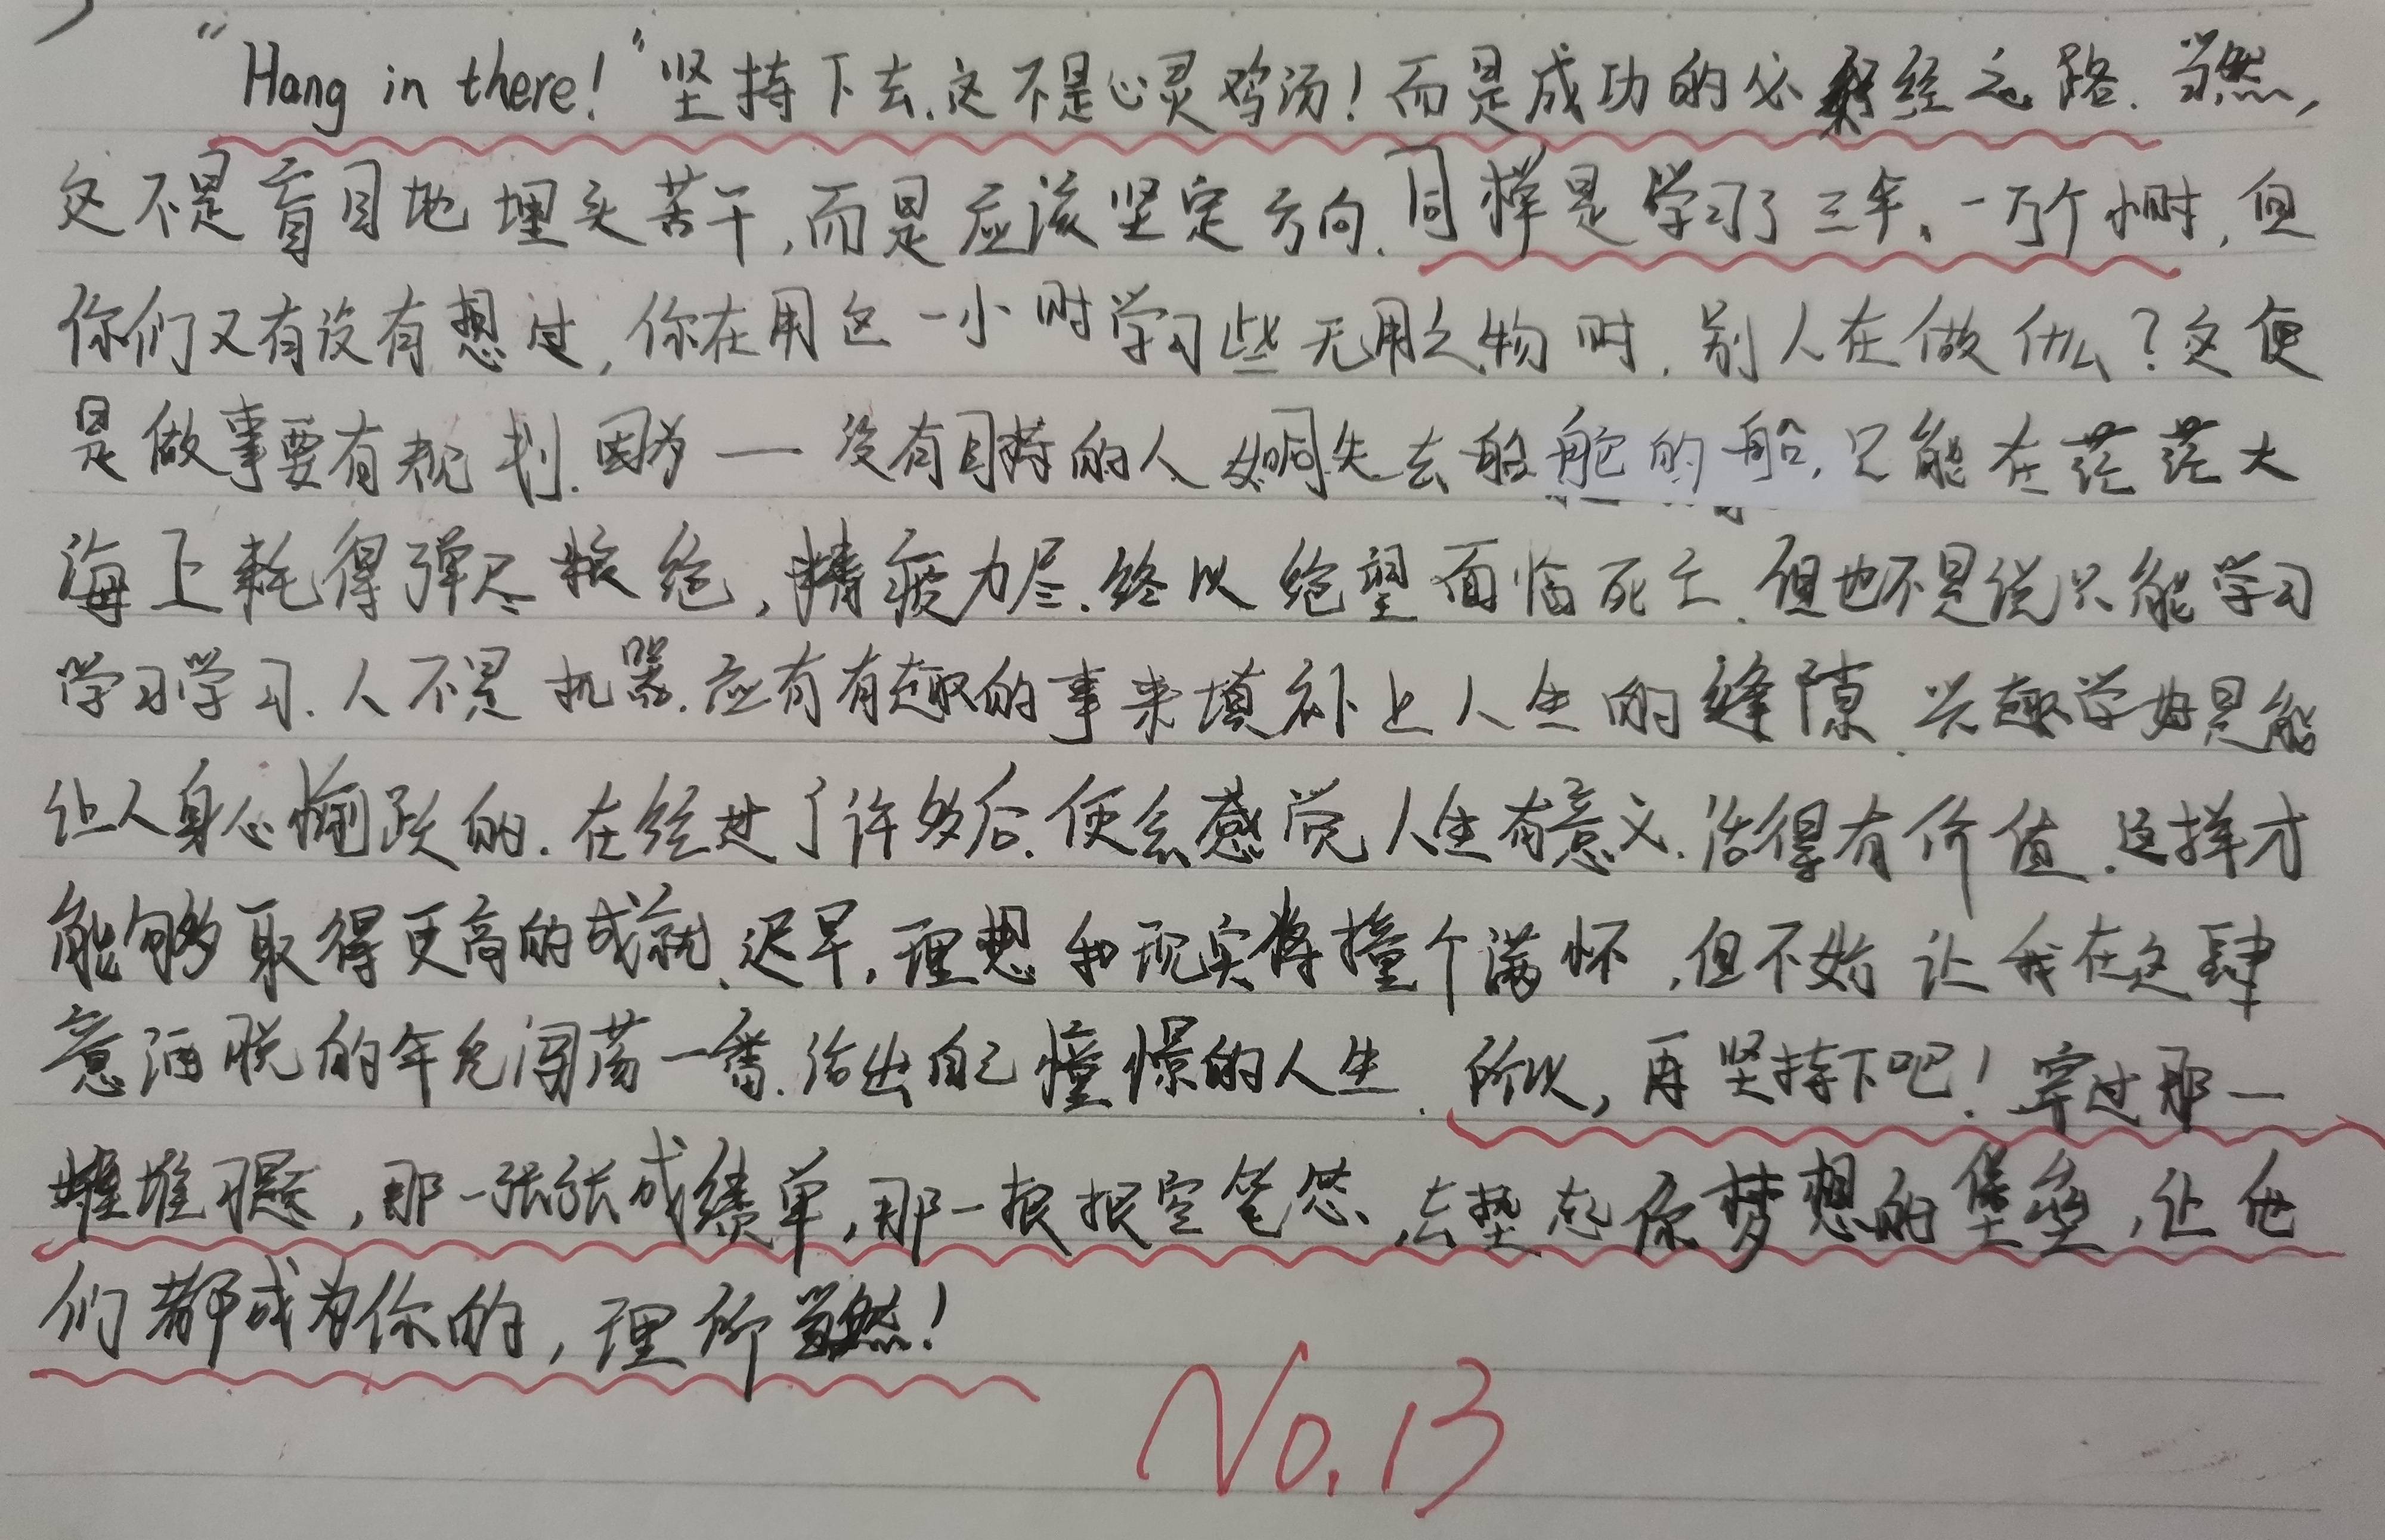 “Hang in there!”坚持下去.这不是心灵鸡汤!而是成功的必经之路.当然,
这不是盲目地埋头苦干,而是应该坚定方向.同样是学习了三年、一万个小时,但
你们又有没有想过,你在用这一小时学习些无用之物时,别人在做什么?这便
是做事要有规划.因为——没有目标的人如同失去船舵的船,只能在茫茫大
海上耗得弹尽粮绝,精疲力尽.终以绝望面临死亡.但也不是说只能学习
学习学习.人不是机器.应有有趣的事来填补上人生的缝隙.兴趣学好是能
让人身心愉跃的.在经过了许多后.便会感觉人生有意义.活得有价值.这样才
能够取得更高的成就.迟早,理想和现实将撞个满怀,但不妨让我在这肆
意洒脱的年纪闯荡一番.活出自己憧憬的人生.所以,再坚持下吧!穿过那一
堆堆习题,那一张张成绩单,那一根根空笔芯、去垫起你梦想的堡垒,让他
们都成为你的,理所当然!
No.13